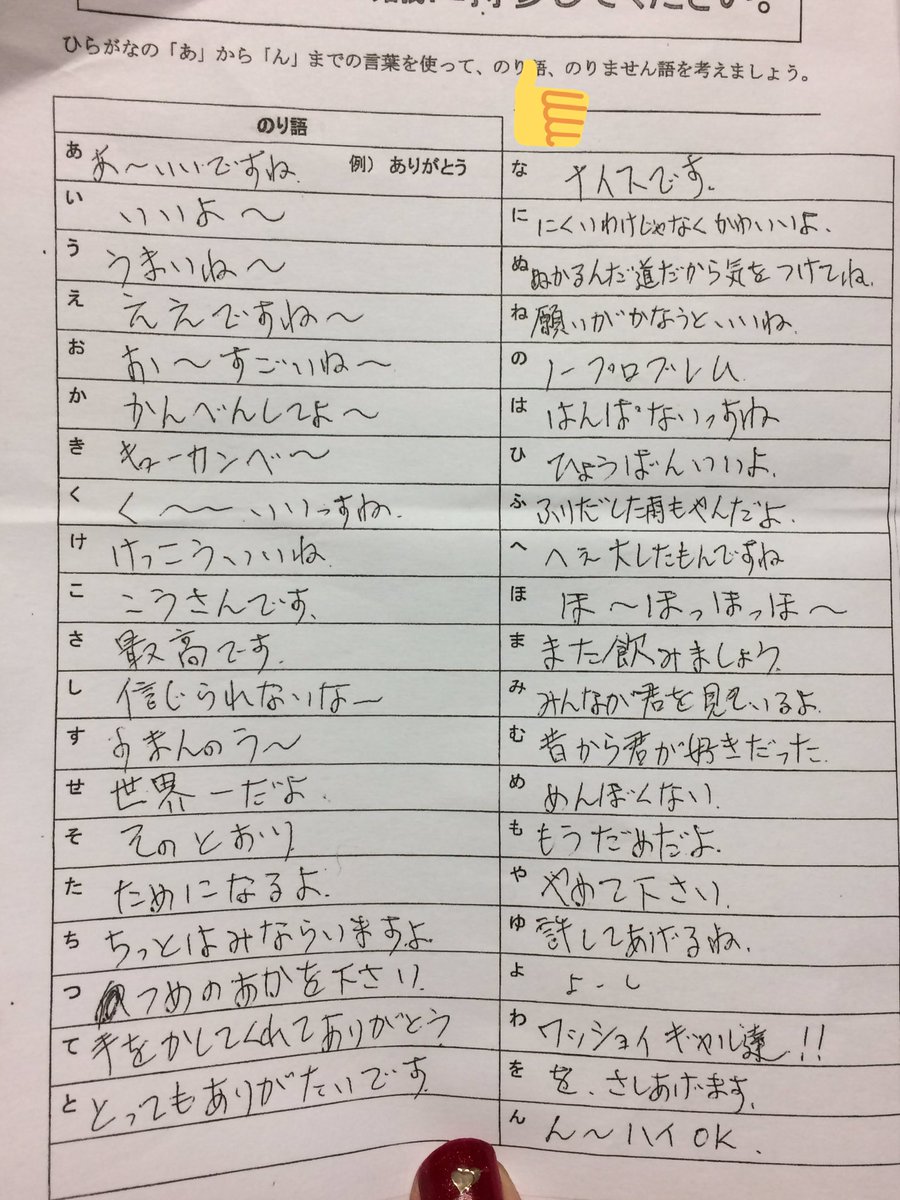 してください。
ひらがなの「あ」から「ん」までの言葉を使って、のり語、のりません語を考えましょう。
のり語
あ あ〜いいですね 例）ありがとう
い いいよ〜
う うまいね〜
え ええですね〜
お おぃ〜すごいね〜
か かんべんしてよ〜
き キューカンベ〜
く く〜〜いいっすね.
け けっこういいね
こ こうさんです、
さ 最高です.
し 信じられないなー
す すまんのう〜
せ 世界一だよ
そ そのとおり
た ためになるよ.
ち ちっとはみならいますよ
つ つめのあかを下さい.
て 手をかしてくれてありがとう
と とってもありがたいです.
な ナイスです.
に にくいわけじゃなくかわいいよ.
ぬ ぬかるんだ道だから気をつけてね.
ね 願いがかなうといいね.
の ノープロブレム
は はんぱないっすね
ひ ひょうばんいいよ.
ふ ふりだした雨もやんだよ.
へ へぇ大したもんですね
ほ ほ〜ほっほっほ〜
ま また飲みましょう.
み みんなが君を見ているよ.
む 昔から君が好きだった.
め めんぼくない.
も もうだめだよ.
や やめて下さい.
ゆ 許してあげるね.
よ よーし
わ ワッショイギャル達!!
を を、さしあげます.
ん ん〜ハイOK.